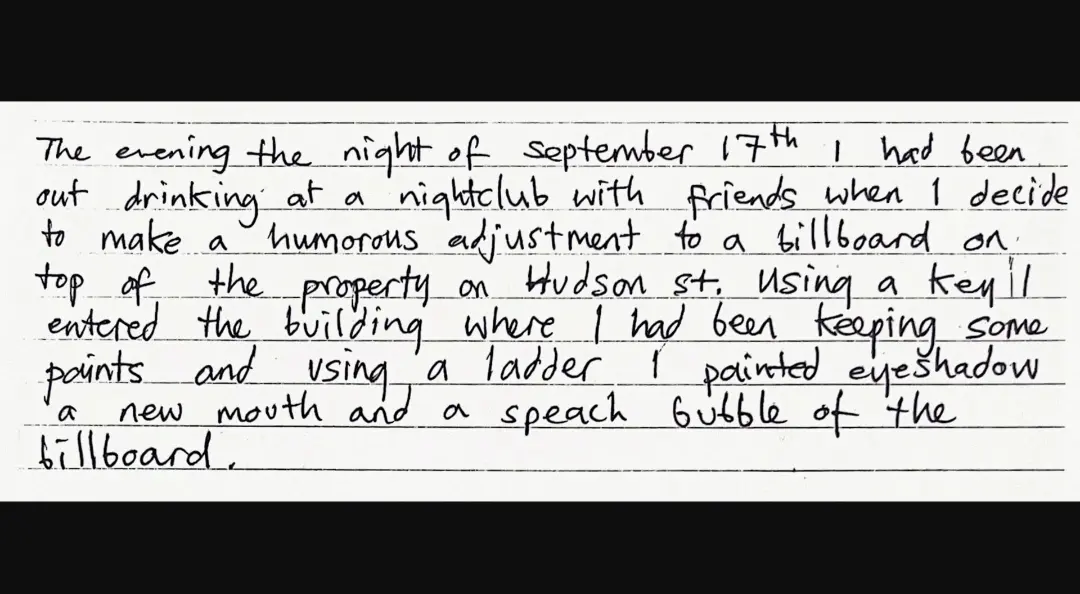 The evening the night of september 17th I had been
out drinking at a nightclub with friends when I decide
to make a humorous adjustment to a billboard on
top of the property on Hudson st. Using a key I
entered the building where I had been keeping some
paints and using a ladder I painted eyeshadow
a new mouth and a speach bubble of the
billboard.